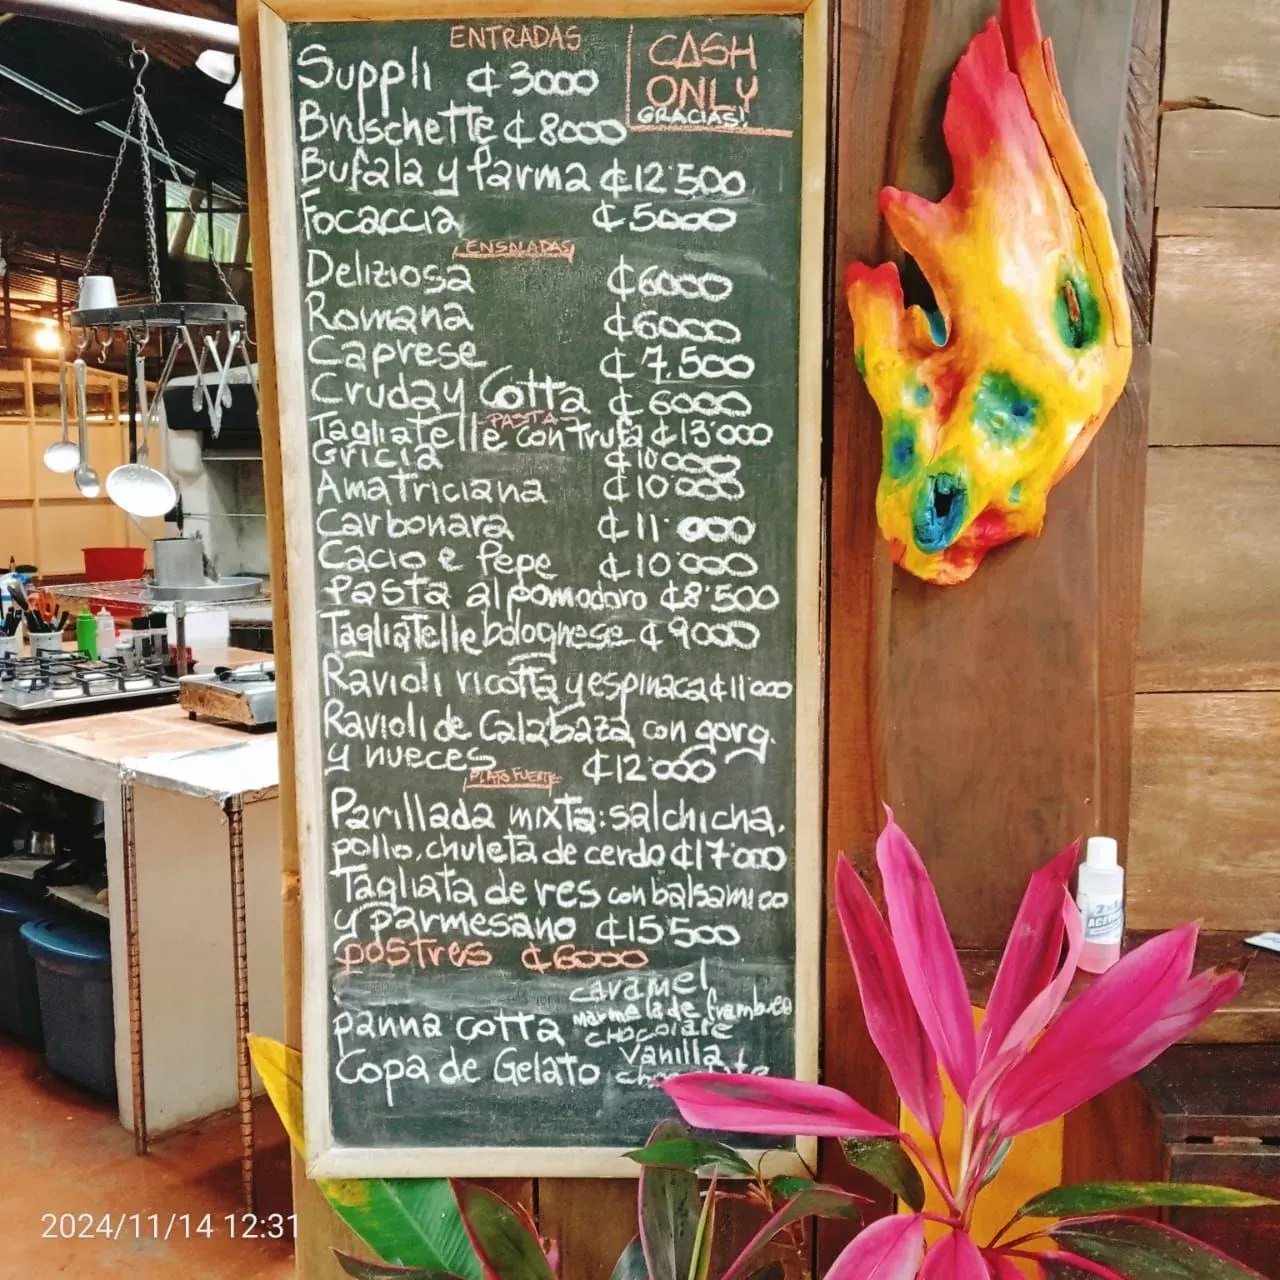 ENTRADAS
CASH
ONLY
GRACIAS!
Suppli ₡3000
Bruschette ₡8000
Bufala y Parma ₡12'500
Focaccia ₡5000
ENSALADAS
Deliziosa ₡6000
Romana ₡6000
Caprese ₡7.500
Cruda y Cotta ₡6000
PASTA
Tagliatelle con Trufa ₡13'000
Gricia ₡10'000
Amatriciana ₡10'000
Carbonara ₡11'000
Cacio e Pepe ₡10'000
Pasta al pomodoro ₡8'500
Tagliatelle bolognese ₡9000
Ravioli ricotta y espinaca ₡11'000
Ravioli de Calabaza con gorg.
y nueces ₡12'000
PLATO FUERTE
Parillada mixta: salchicha,
pollo, chuleta de cerdo ₡17'000
Tagliata de res con balsamico
y parmesano ₡15'500
postres ₡6000
caramel
marmelade frambuesa
panna cotta chocolate
Copa de Gelato vanilla
chocolate
2024/11/14 12:31